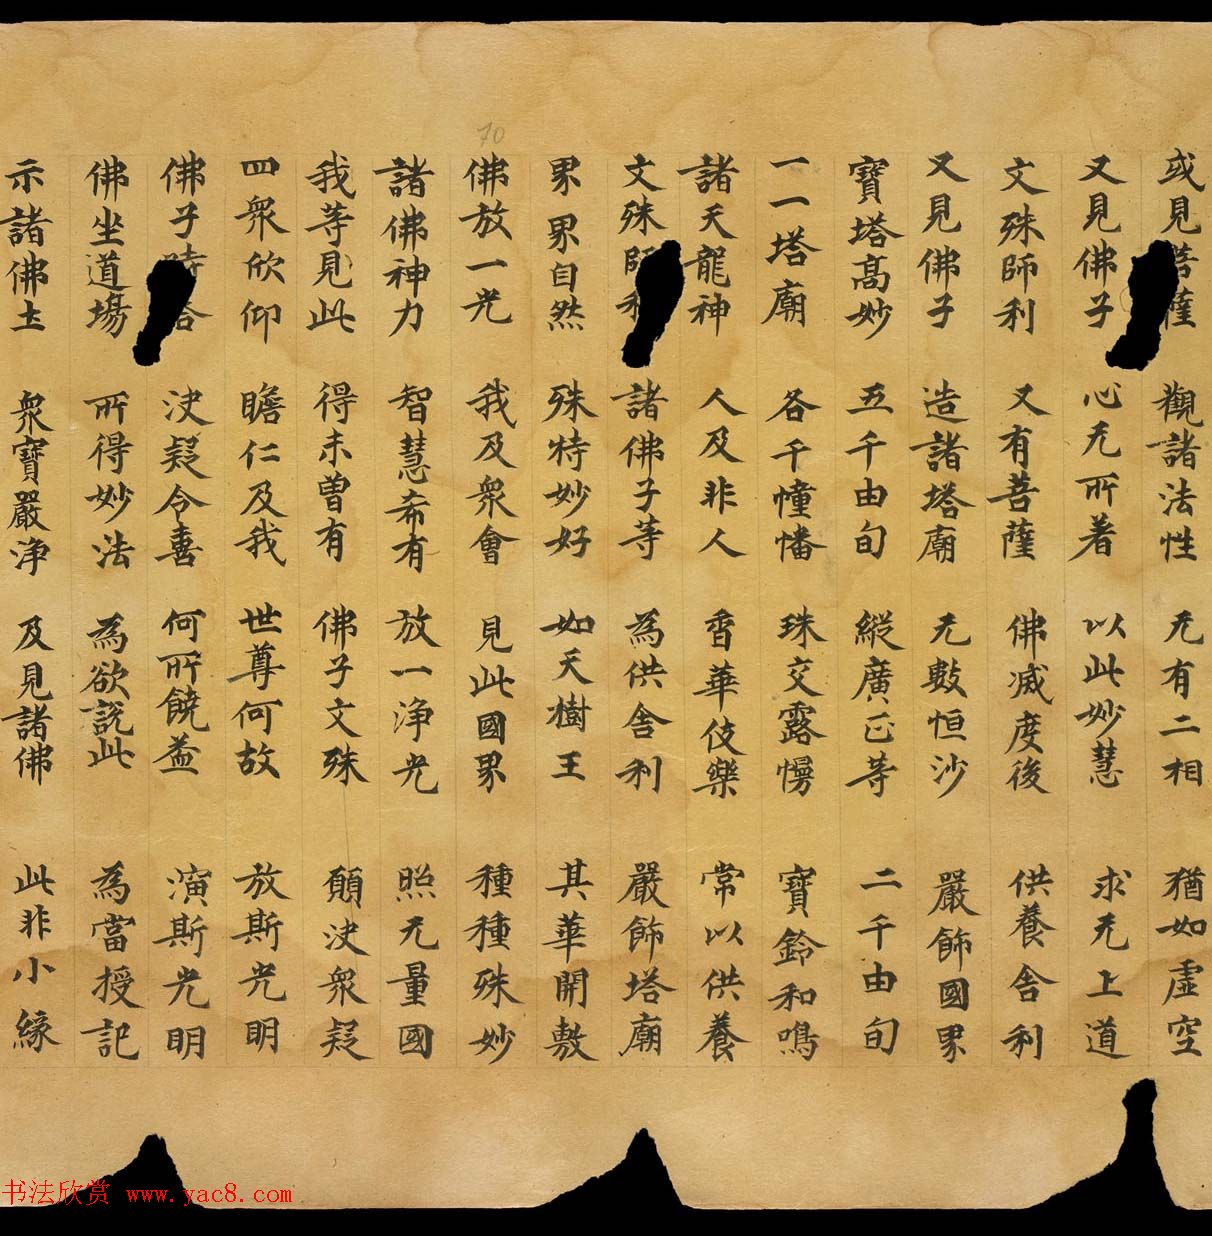 或見菩薩 觀諸法性 无有二相 猶如虛空
又見佛子 心无所著 以此妙慧 求无上道
文殊師利 又有菩薩 佛滅度後 供養舍利
又見佛子 造諸塔廟 无數恒沙 嚴飾國界
寶塔高妙 五千由旬 縱廣正等 二千由旬
一一塔廟 各千幢幡 珠交露幔 寶鈴和鳴
諸天龍神 人及非人 香華伎樂 常以供養
文殊師利 諸佛子等 為供舍利 嚴飾塔廟
界界自然 殊特妙好 如天樹王 其華開敷
佛放一光 我及衆會 見此國界 種種殊妙
諸佛神力 智慧希有 放一淨光 照无量國
我等見此 得未曾有 佛子文殊 願決衆疑
四衆欣仰 瞻仁及我 世尊何故 放斯光明
佛子時答 決疑令喜 何所饒益 演斯光明
佛坐道場 所得妙法 為欲說此 為當授記
示諸佛土 衆寶嚴淨 及見諸佛 此非小緣
70
书法欣赏 www.yac8.com